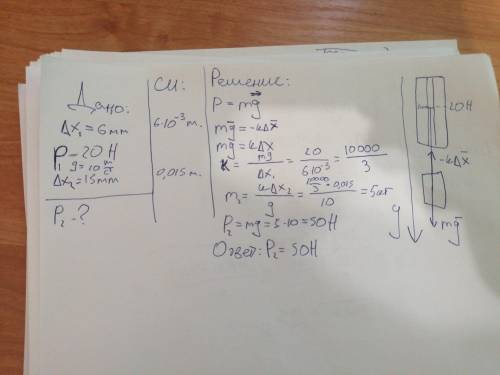 Дано:
Δx₁ = 6 мм
P₁ = 20 Н
g = 10 м/с²
Δx₂ = 15 мм
P₂ - ?
СИ:
6·10⁻³ м.
0,015 м.
Решение:
P = mg
mg = -kΔx
mg = kΔx
k = mg/Δx₁ = 20/6·10⁻³ = 10000/3
m₁ = kΔx₂/g = 10000/3 · 0,015/10 = 5 кг
P₂ = mg = 5·10 = 50Н
Ответ: P₂ = 50Н
20Н
-kΔx
mg
y